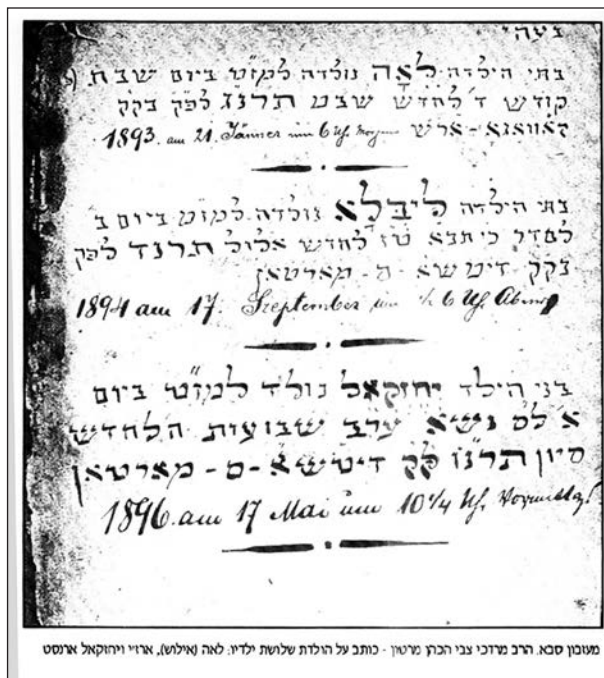 בעהי
בתי הילדה לאה נולדה למז"ט ביום שבת
קודש ד' לחדש שבט תרנג לפק בקק
קאוואנא - ארש 1893. am 21. Jänner um 6 Uh. Morgens
בתי הילדה ליבלא נולדה למזט ביום ב'
לסדר כי תבא טז לחדש אלול תרנד לפק
בקק דיטשא - ס - מארטאן
1894 am 17. September um 6 Uh Abend
בני הילד יחזקאל נולד למז"ט ביום
א' לס נשא ערב שבועות ה' לחדש
סיון תרנו קק דיטשא - ס - מארטאן
1896. am 17 Mai um 10 1/4 Uh. Vormittag
מעזבון סבא. הרב מרדכי צבי הכהן מרטון - כותב על הולדת שלושת ילדיו: לאה (אילוש), ארז'י ויחזקאל ארנסט